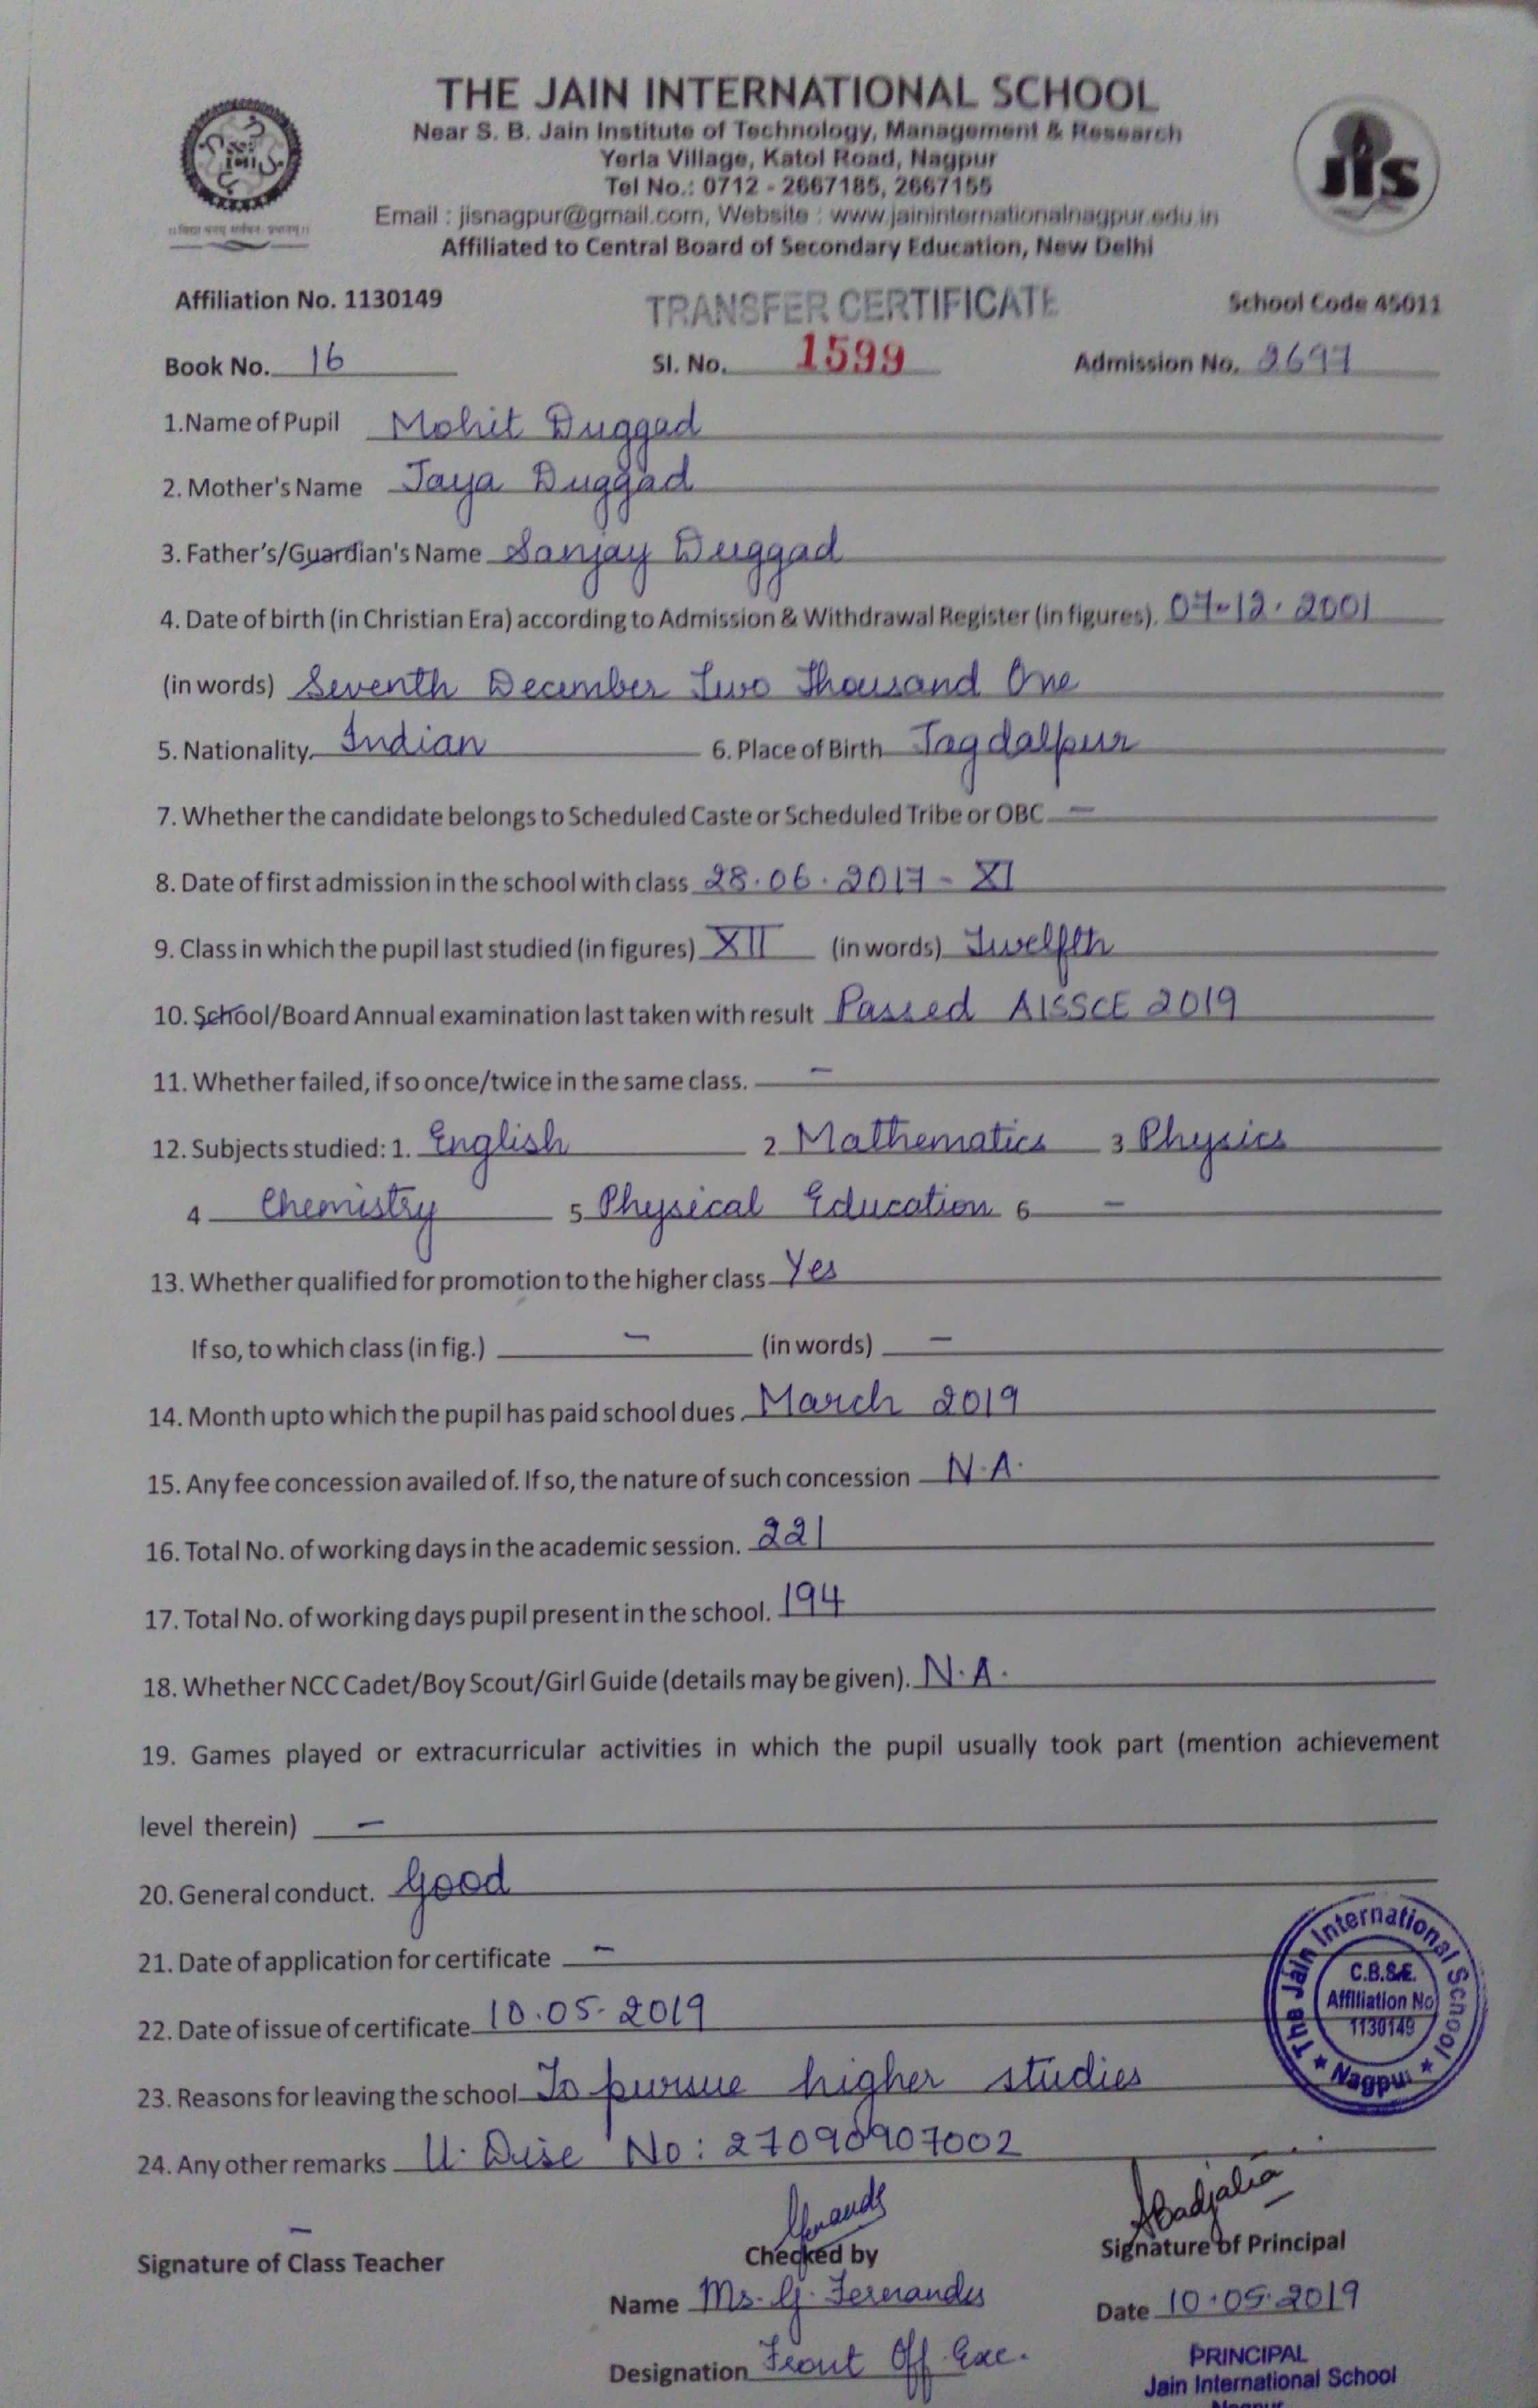 THE JAIN INTERNATIONAL SCHOOL
Near S. B. Jain Institute of Technology, Management & Research
Yerla Village, Katol Road, Nagpur
Tel No.: 0712 - 2667185, 2667155
Email : jisnagpur@gmail.com, Website : www.jaininternationalnagpur.edu.in
Affiliated to Central Board of Secondary Education, New Delhi
jis
Affiliation No. 1130149 TRANSFER CERTIFICATE School Code 45011
Book No. 16 Sl. No. 1599 Admission No. 2697
1.Name of Pupil Mohit Duggad
2. Mother's Name Jaya Duggad
3. Father's/Guardian's Name Sanjay Duggad
4. Date of birth (in Christian Era) according to Admission & Withdrawal Register (in figures). 07-12-2001
(in words) Seventh December Two Thousand One
5. Nationality. Indian 6. Place of Birth Jagdalpur
7. Whether the candidate belongs to Scheduled Caste or Scheduled Tribe or OBC —
8. Date of first admission in the school with class 28.06.2017 - XI
9. Class in which the pupil last studied (in figures) XII (in words) Twelfth
10. School/Board Annual examination last taken with result Passed AISSCE 2019
11. Whether failed, if so once/twice in the same class. —
12. Subjects studied: 1. English 2 Mathematics 3 Physics
4 Chemistry 5 Physical Education 6 —
13. Whether qualified for promotion to the higher class Yes
If so, to which class (in fig.) — (in words) —
14. Month upto which the pupil has paid school dues. March 2019
15. Any fee concession availed of. If so, the nature of such concession N.A.
16. Total No. of working days in the academic session. 221
17. Total No. of working days pupil present in the school. 194
18. Whether NCC Cadet/Boy Scout/Girl Guide (details may be given). N.A.
19. Games played or extracurricular activities in which the pupil usually took part (mention achievement
level therein) —
20. General conduct. Good
21. Date of application for certificate —
22. Date of issue of certificate 10.05.2019
23. Reasons for leaving the school To pursue higher studies
24. Any other remarks U. Dise No: 27090907002
The Jain International School
C.B.S.E.
Affiliation No
1130149
★ Nagpur ★
—
Signature of Class Teacher Checked by Signature of Principal
Name Ms. G. Fernandes Date 10.05.2019
Designation Front Off. Exc.
PRINCIPAL
Jain International School
Nagpur